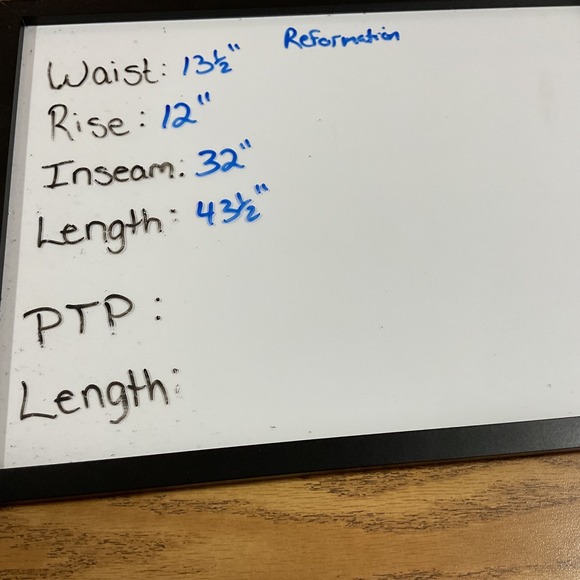 Reformation
Waist: 13½"
Rise: 12"
Inseam: 32"
Length: 43½"
PTP:
Length: